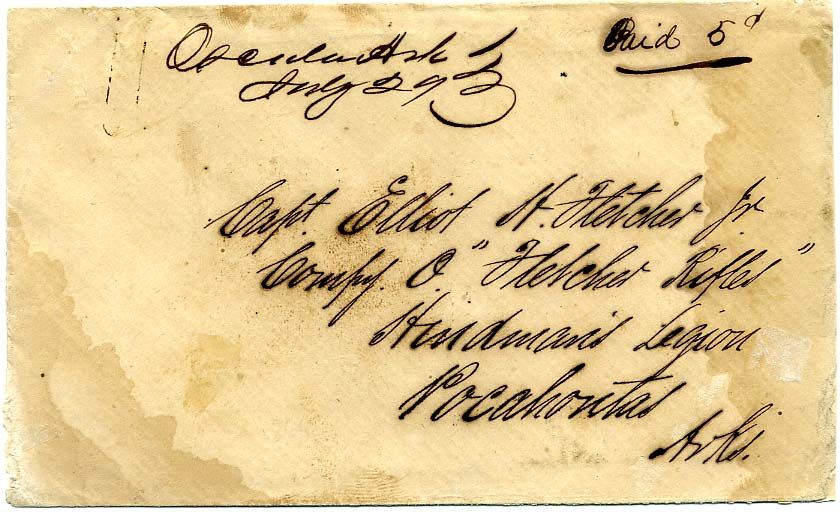 Osceola Ark
July 29
Paid 5
Capt. Elliot H. Fletcher Jr
Compy. C. "Fletcher Rifles"
Hindman's Legion
Pocahontas
Arks.